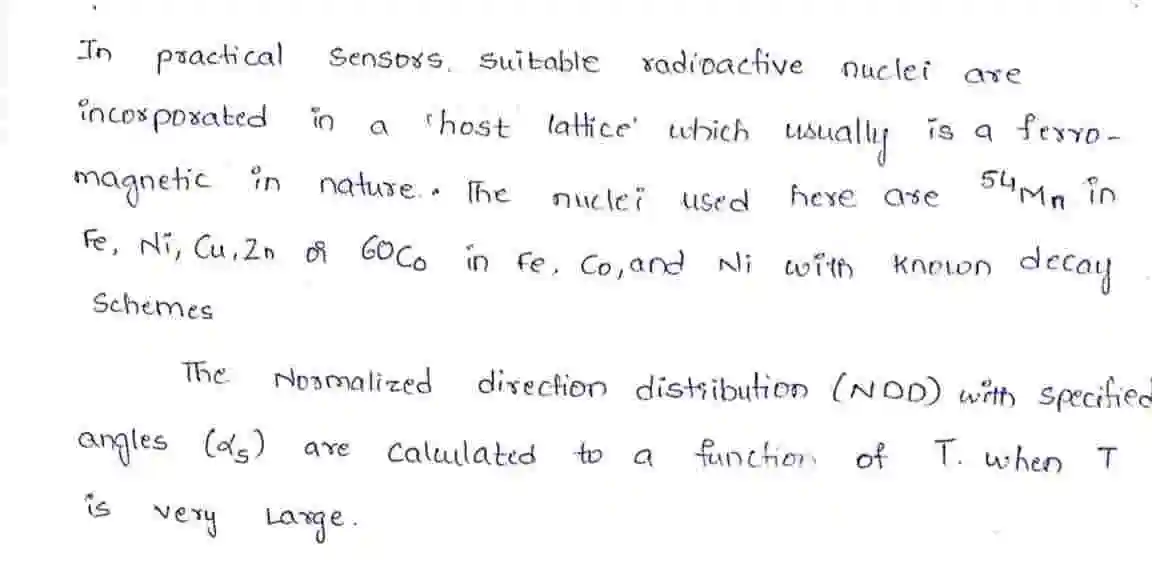 In practical Sensors. suitable radioactive nuclei are
incorporated in a 'host lattice' which usually is a ferro-
magnetic in nature.. The nuclei used here are 54Mn in
Fe, Ni, Cu, Zn or 60Co in Fe, Co, and Ni with known decay
Schemes
The Normalized direction distribution (NDD) with specified
angles (αs) are calculated to a function of T. when T
is very Large.